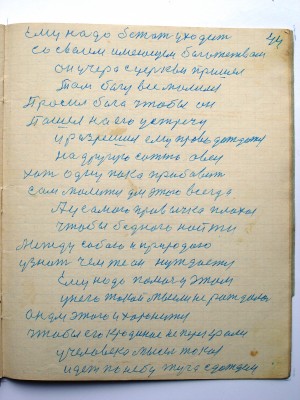 44
Ему надо бежат уходит
со своим имеющем богоматвам
он учера с церкви пришел
Там богу все молился
Просил бога чтобы он
Пошел на его устречу
и разрешил ему провод дождям
на другую сотню овец
хот одну пока прибавит
сам молится для этого всегда
А у самого привычка плохая
чтобы бедного найти
Между собою и природаю
узнат чем же он нуждается
Ему надо помогу этом
у него такой мысли не рождался
он для этого и хоронится
чтобы его кровинае не переграли
у человека мысл такая
идет по небу туча с дождям